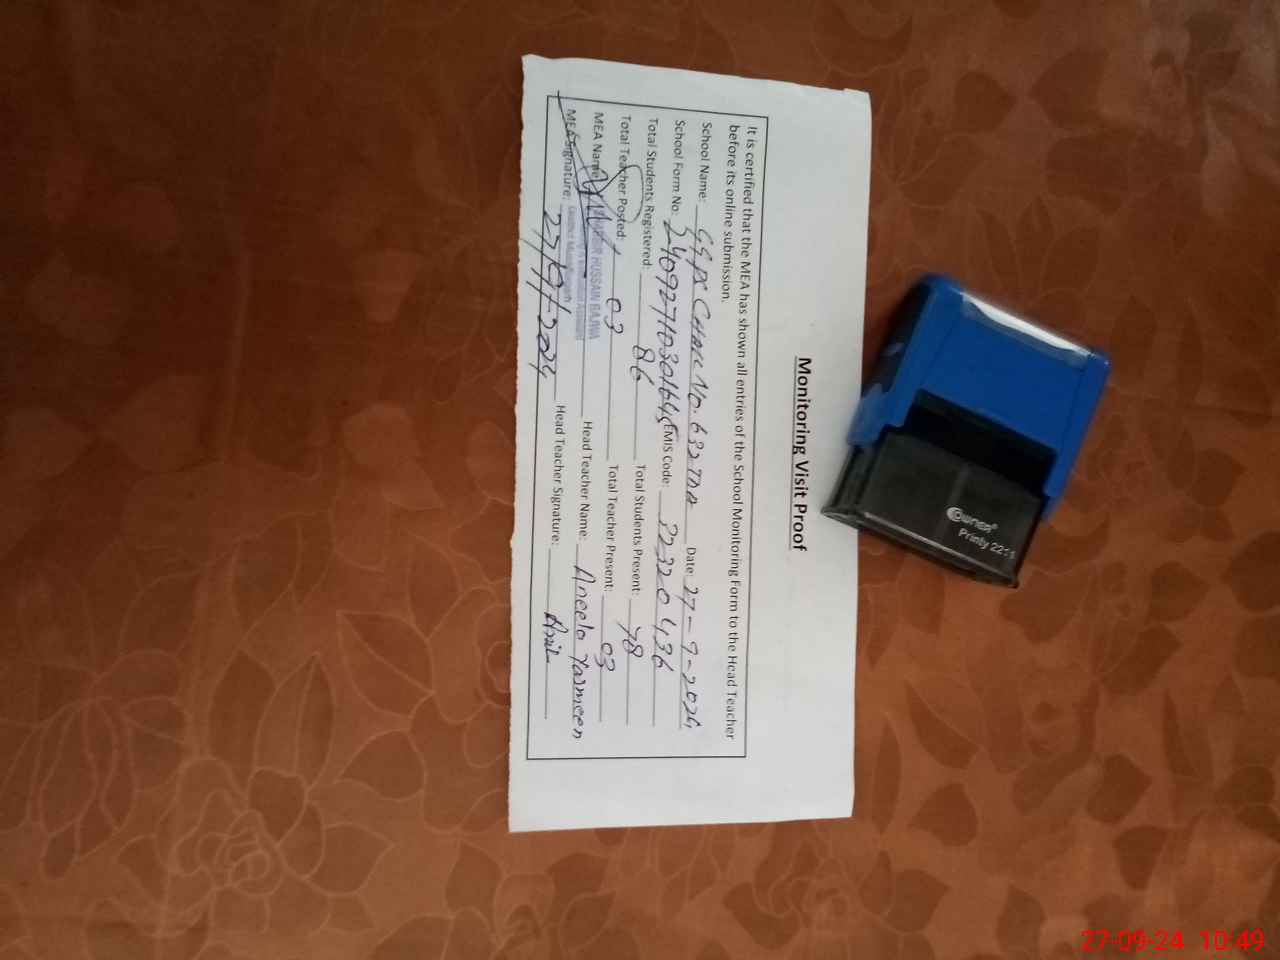 Monitoring Visit Proof
It is certified that the MEA has shown all entries of the School Monitoring Form to the Head Teacher
before its online submission.
School Name: GGPS CHAK No. 632TDA Date: 27-9-2024
School Form No: EMIS Code: 32320436
Total Students Registered: 86 Total Students Present: 78
Total Teacher Posted: 03 Total Teacher Present: 03
MEA Name: HUSSAIN BAJWA Head Teacher Name: Aneela Yasmeen
MEA Signature: 27/9/2024 Head Teacher Signature:
Printy 2211
27-09-24 10:49